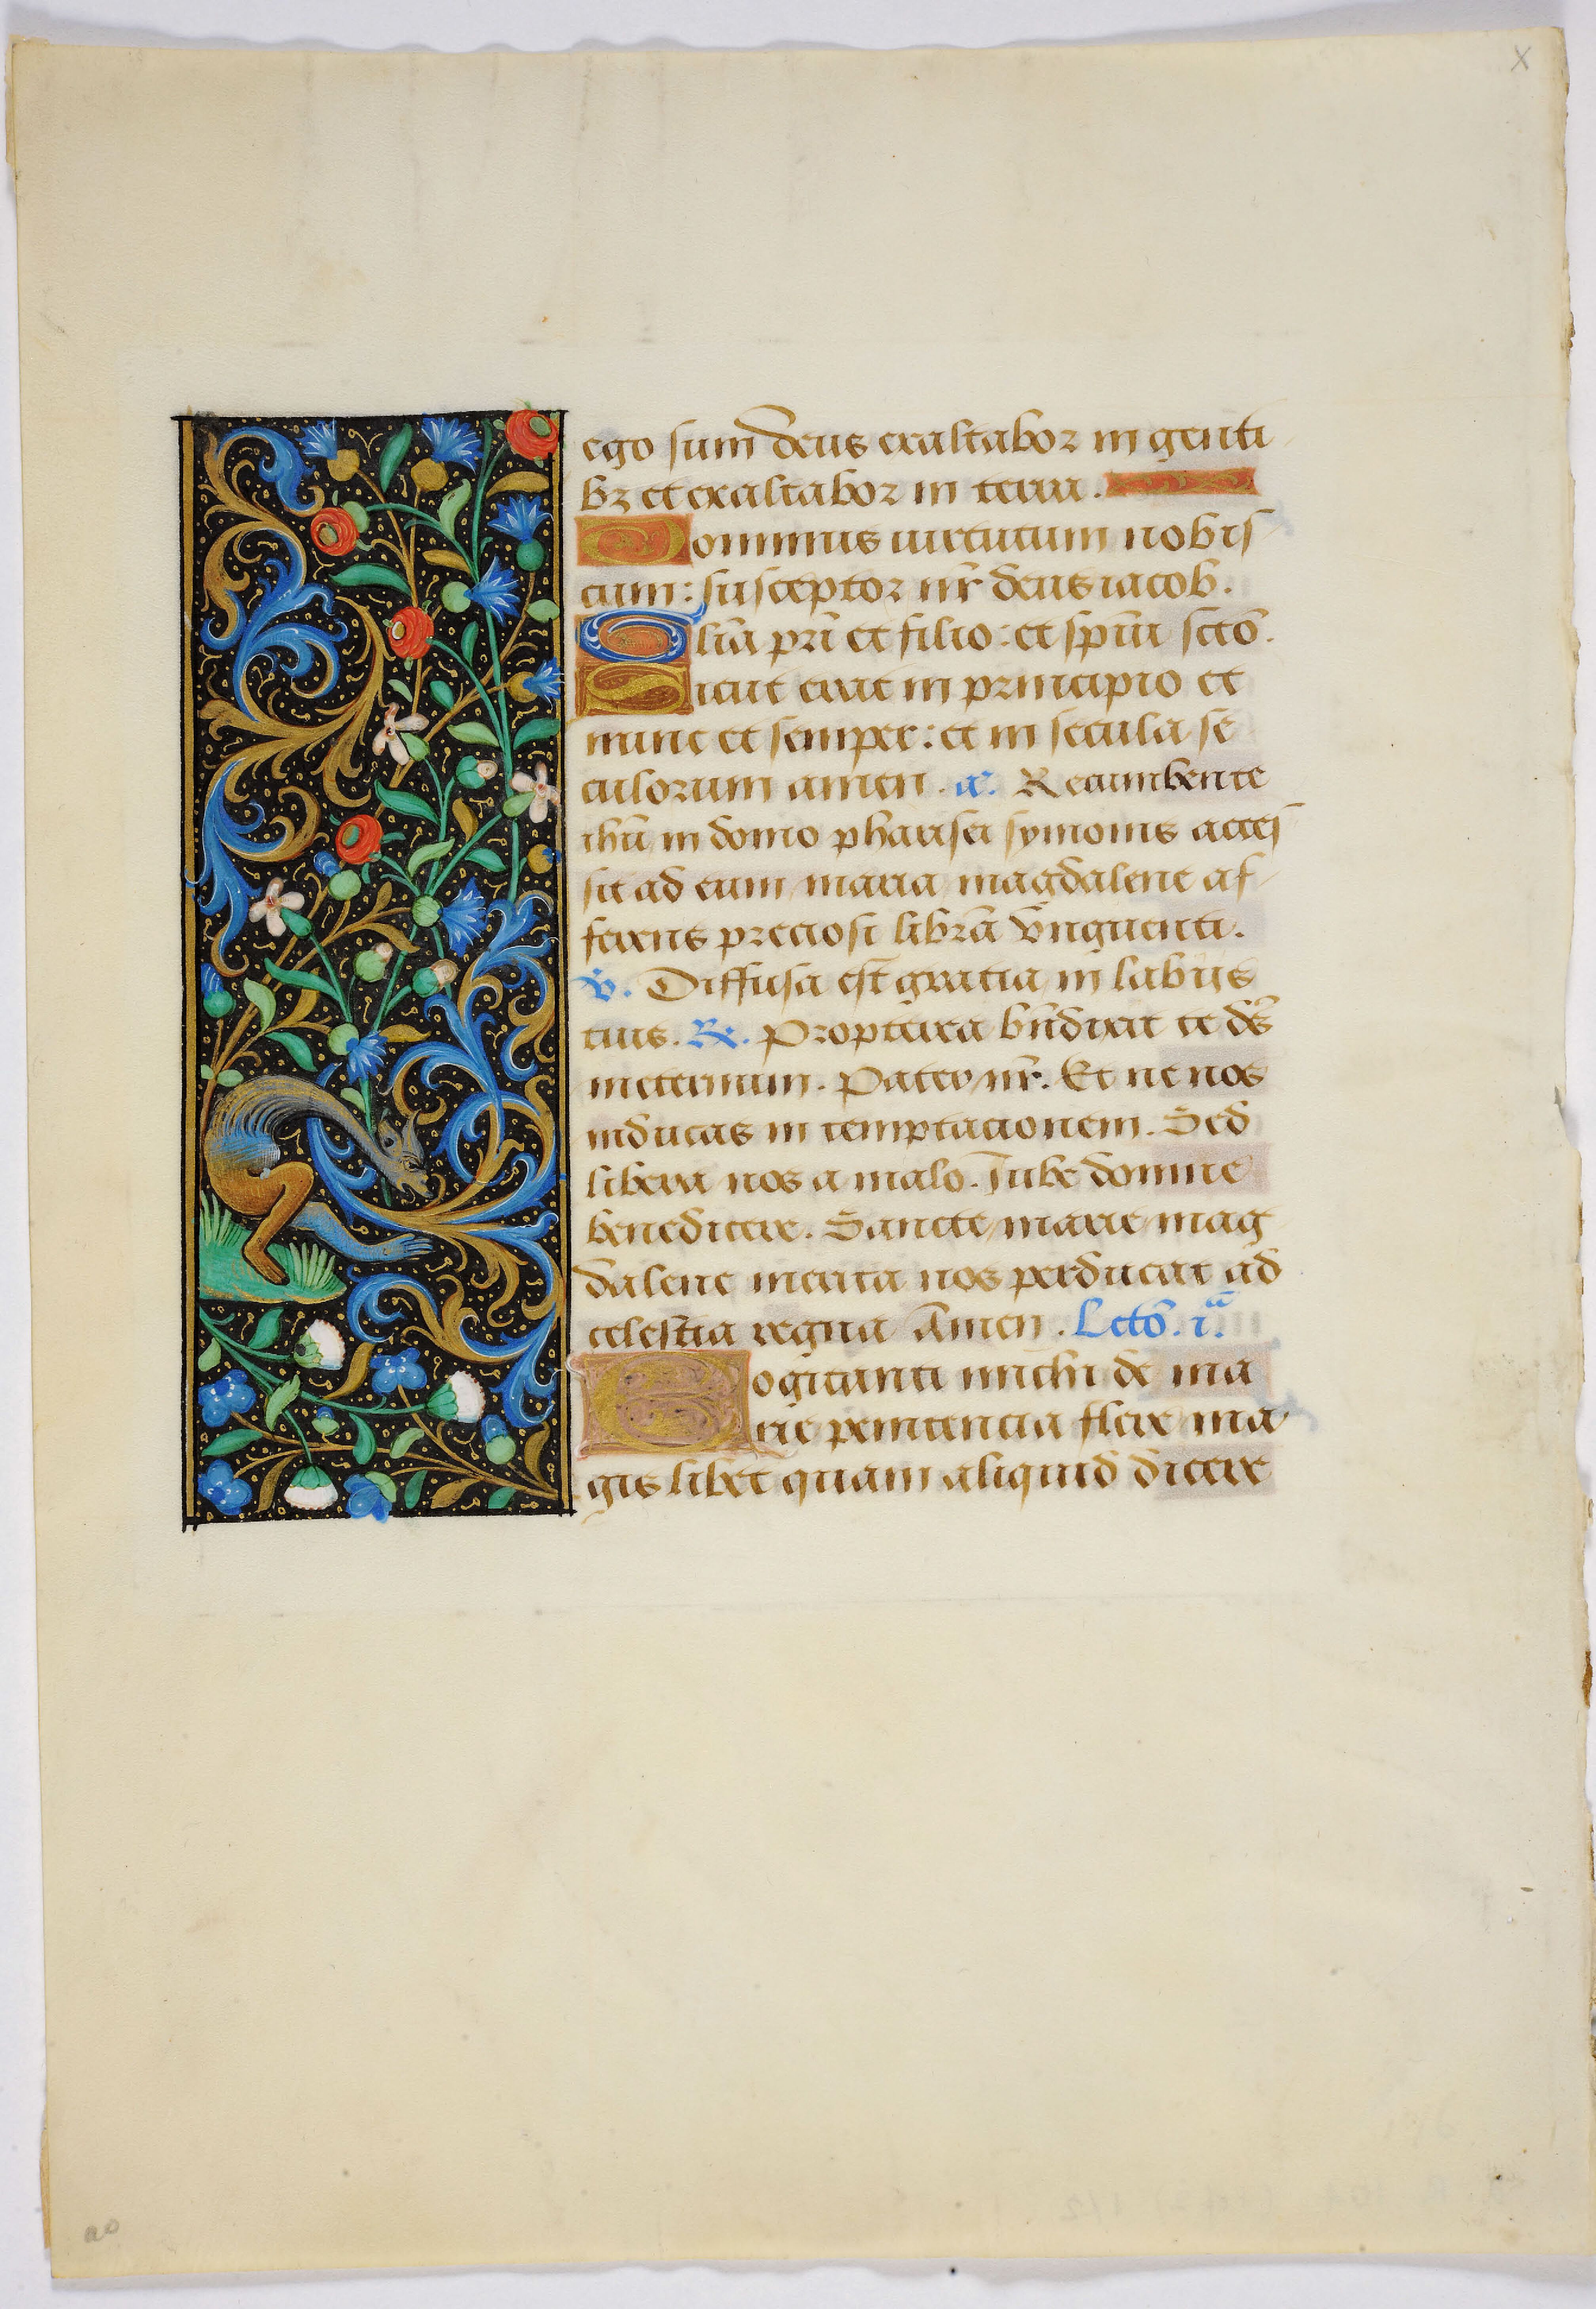 ego sum deus exaltabor in genti
bz et exaltabor in terra.
Dominus uirtutum nobis
cum: susceptor nr̄ deus iacob.
Glīa pr̄i et filio: et sp̄ui sctō.
Sicut erat in principio et
nunc et semper: et in secula se
culorum amen. a. Recumbente
ihū in domo pharisei symonis acces
sit ad eum maria magdalene af
ferens preciosi librā vnguenti.
v. Diffusa est gratia in labiis
tuis. R. Propterea bn̄dixit te ds̄
ineternum. Pater nr̄. Et ne nos
inducas in temptacionem. Sed
libera nos a malo. Iube domne
benedicere. Sancte marie mag
dalene merita nos perducat ad
celestia regna Amen. Lcto. i.ᵃ
Cogitanti michi de ma
rie penitencia flere ma
gis libet quam aliquid dicere
x